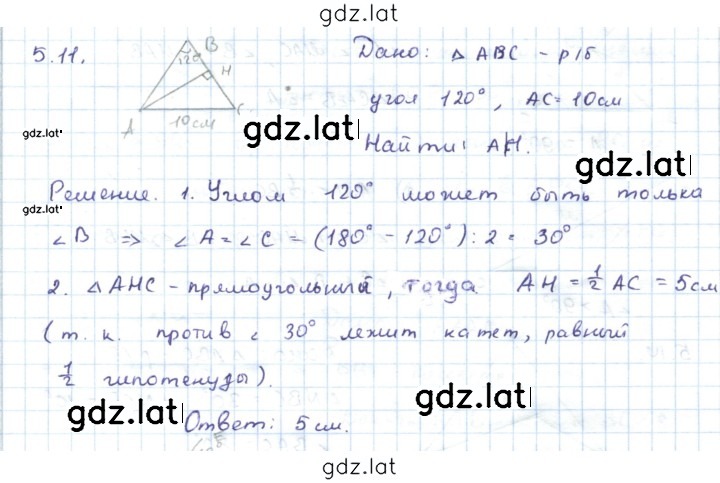 gdz.lat
5.11.
B
120°
H
A
C
10см
Дано: △ ABC - р/б
угол 120°, AC = 10см
Найти: AH.
gdz.lat
gdz.lat
gdz.lat
Решение. 1. Углом 120° может быть только
gdz.lat
∠B ⇒ ∠A = ∠C = (180° - 120°) : 2 = 30°
2. △AHC - прямоугольный, тогда AH = 1/2 AC = 5см
(т. к. против ∠ 30° лежит катет, равный
1/2 гипотенузы).
gdz.lat
gdz.lat
Ответ: 5 см.
gdz.lat